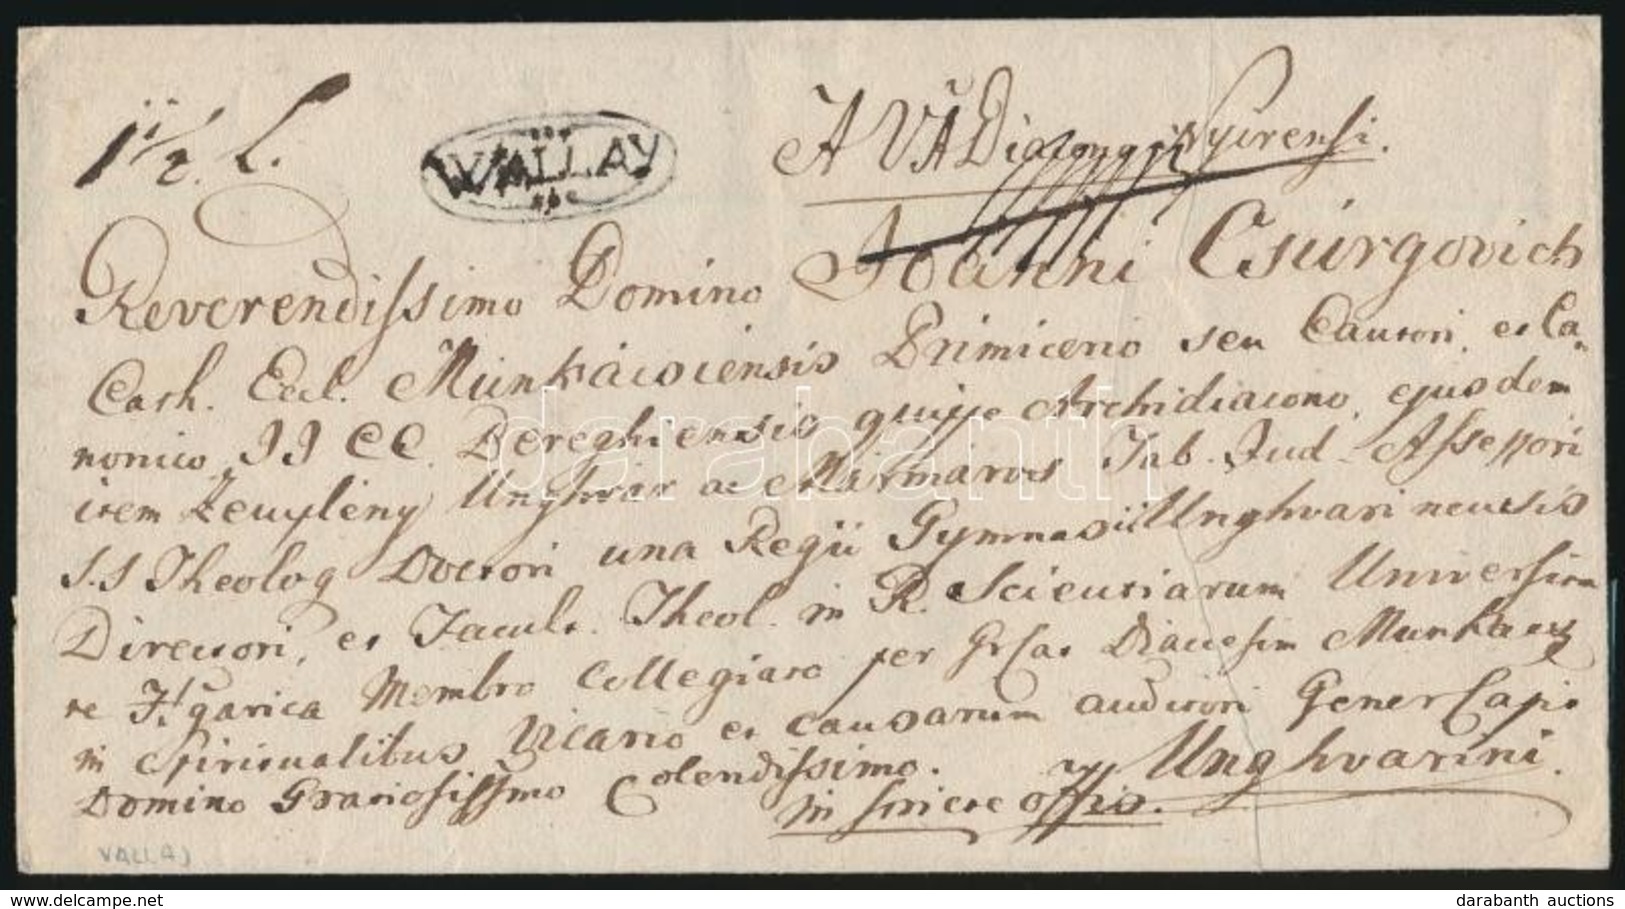 1 1/2 L.
WALLAY
A VA Diacono Nyirensi.
Reverendissimo Domino Joanni Csurgovich
Cath. Eccl. Munkácsiensis Primicerio seu Cantori, et Ca-
nonico, II CC. Bereghiensis quippe Archidiacono, ejusdem
item Zemplény Unghvár ac Mármaros Tab. Jud. Assessori
S.S Theolog Doctori una Regii Gymnasii Unghvariensis
Directori, et Facult. Theol. in R. Scientiarum Universita
te Hungarica Membro Collegiato per Diaecesim
in Spiritualibus Vicario et causarum auditori Gener Capit
Domino Gratiosissmo Colendissimo. Unghvarini.
in sincere offio.
VALLAJ
darabanth
delcampe.net
darabanth auctions